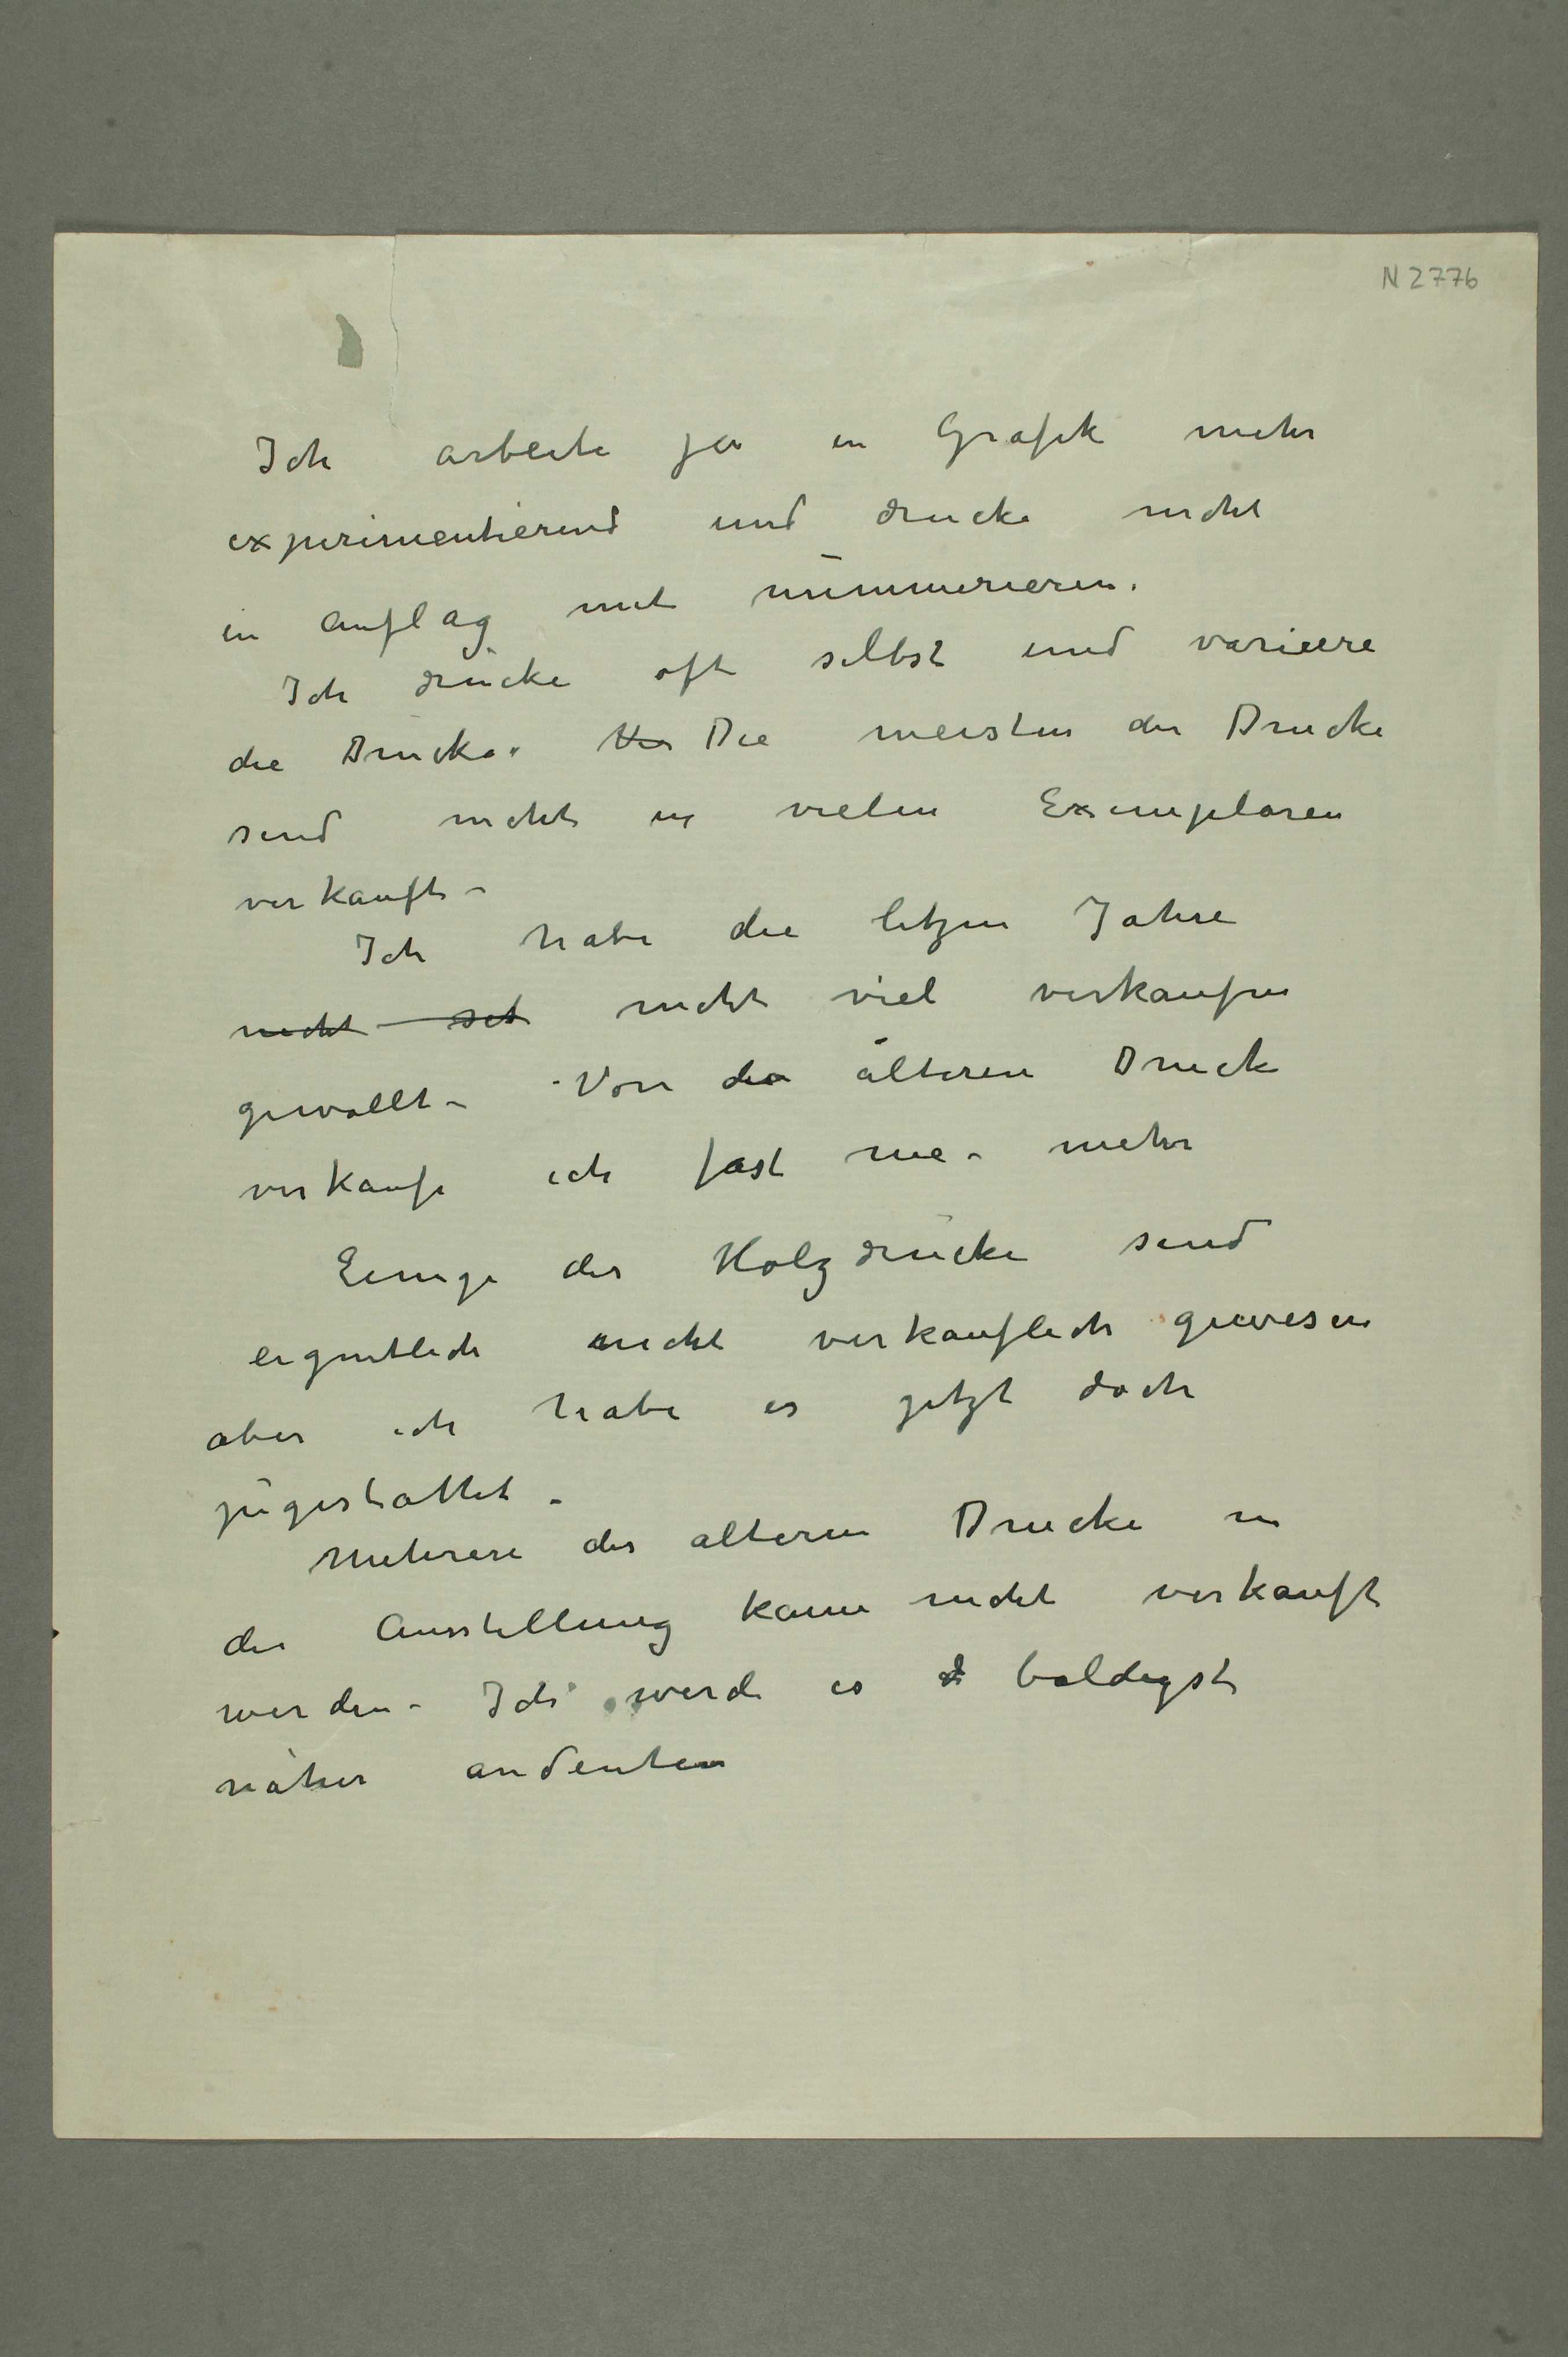 N 2776
Ich arbeite ja in Grafik mehr
experimentierend und drucke nicht
in Auflag mit nummerieren.
Ich drücke oft selbst und varieere
die Drucke. Ver Die meisten der Drucke
sind nicht in vielen Exemplaren
verkauft –
Ich habe die letzen Jahre
nicht set nicht viel verkaufen
gewollt – Von die älteren Druck
verkaufe ich fast nie – mehr
Einige der Holzdrücke sind
eigentlich nicht verkauflich gewesen
aber ich habe es jetzt doch
zugestattet –
Mehrere der alteren Drucke in
der Ausstellung kann nicht verkauft
werden – Ich werde es d baldigst
näher andeuten